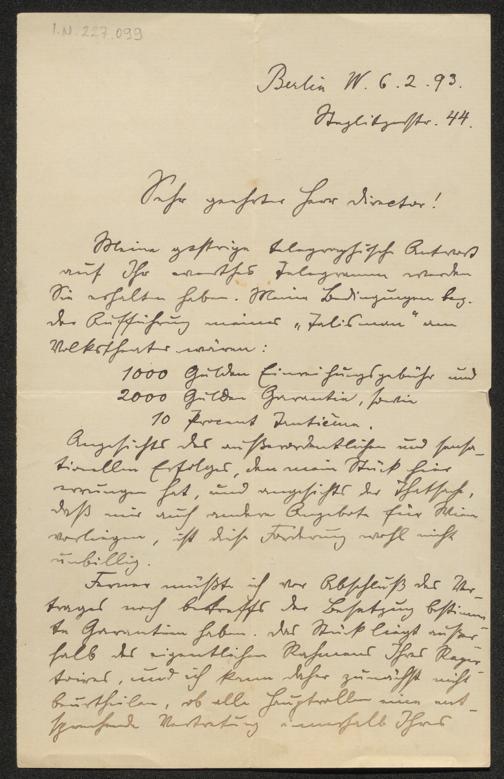 I.N. 227.099
Berlin W. 6.2.93.
Steglitzerstr. 44.
Sehr geehrter Herr Director!
Meine gestrige telegraphische Antwort
auf Ihr werthes Telegramm werden
Sie erhalten haben. Meine Bedingungen bez.
der Aufführung meines „Talisman" am
Volkstheater wären:
1000 Gulden Einreichungsgebühr und
2000 Gulden Garantie, sowie
10 Procent Tantième.
Angesichts des außerordentlichen und sensa-
tionellen Erfolges, den mein Stück hier
errungen hat, und angesichts der Thatsache,
daß mir auch andere Angebote für Wien
vorliegen, ist diese Forderung wohl nicht
unbillig.
Ferner müßte ich vor Abschluß des Ver-
trages noch betreffs der Besetzung bestimm-
te Garantien haben. Das Stück liegt außer-
halb des eigentlichen Rahmens Ihres Reper-
toires, und ich kann daher zunächst nicht
beurtheilen, ob alle Hauptrollen eine ent-
sprechende Vertretung innerhalb Ihres